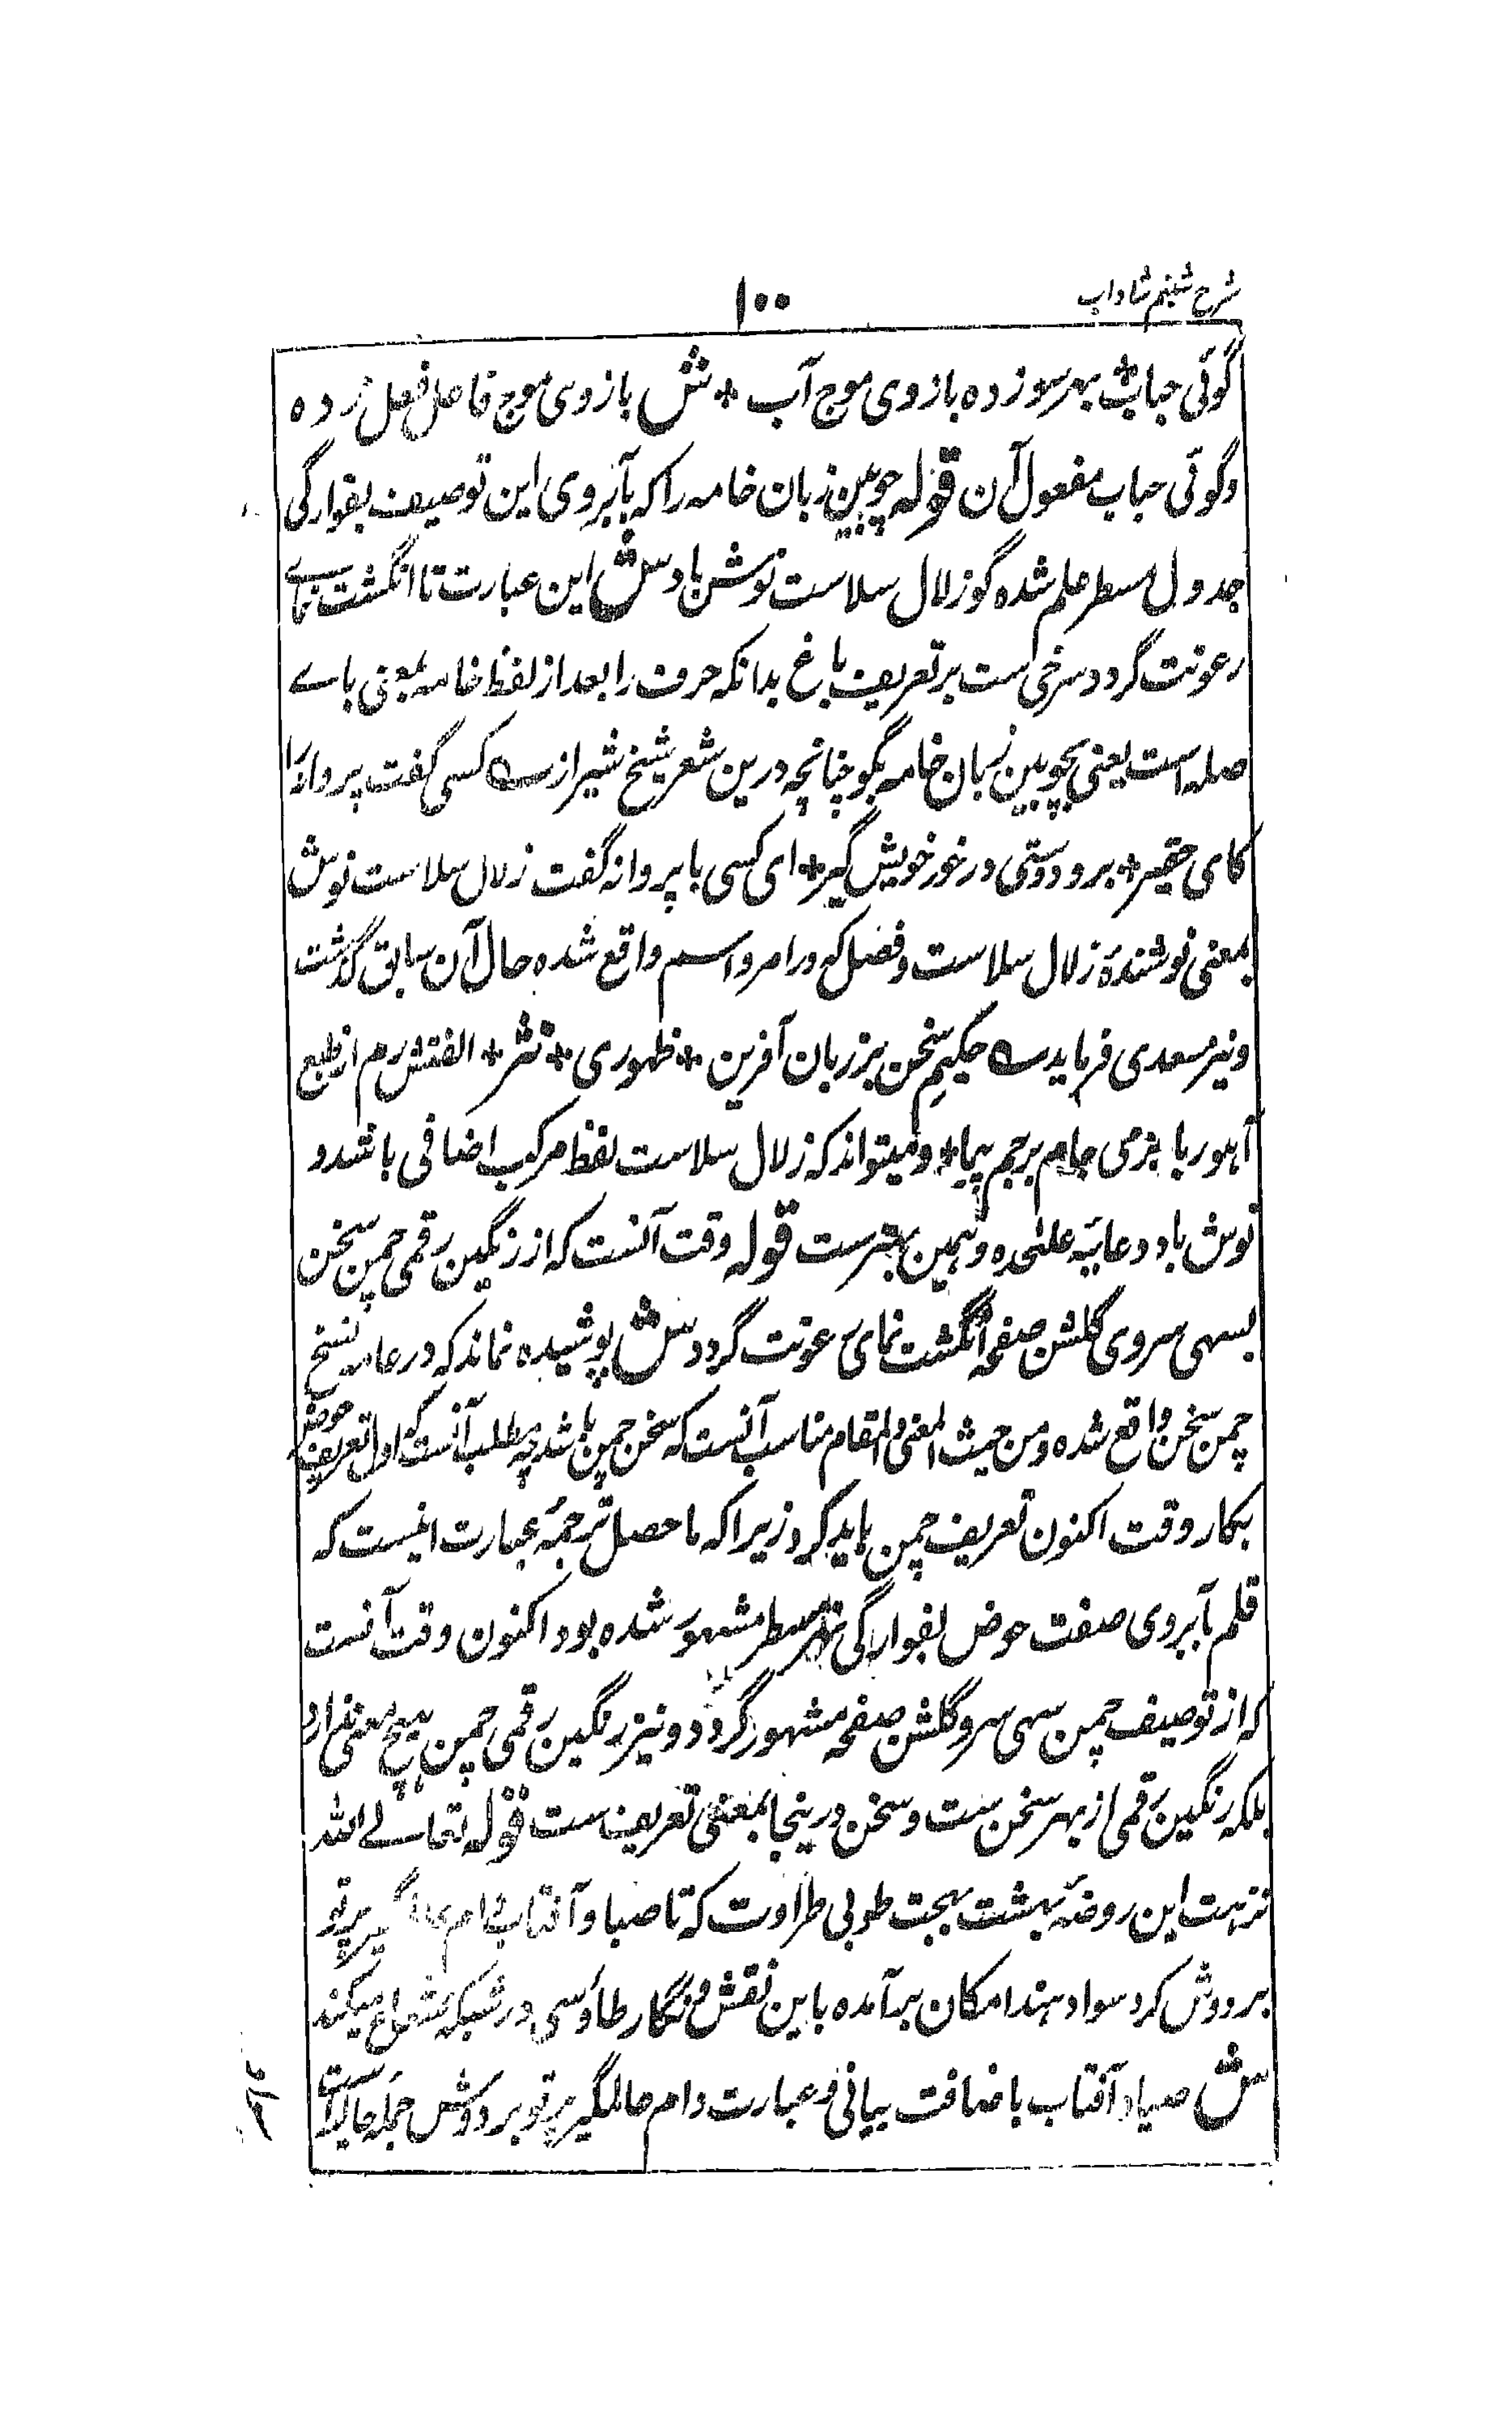 شرح شبنم شاداب
۱۰۰
گوئی حبابش بهر سو زده بازوی موج آب ٭ ش بازوی موج فاعل فعل زده
و گوئی حباب مفعول آن قوله چوبین زبان خامه را که بآبروی این توصیف بفوارگی
جدول مسطر علم شده گو زلال سلاست نوش باد ش این عبارت تا انگشت نمای
رعونت گردد سرخی ست بر تعریف باغ بدانکه حرف را بعد از لفظ خامه بمعنی بای
صله است یعنی بچوبین زبان خامه بگو چنانچه درین شعر شیخ شیراز ؎ کسی گفت پروانه را
کای حقیر ٭ برو دوستی در خور خویش گیر ٭ ای کسی با پروانه گفت زلال سلاست نوش
بمعنی نوشندهٔ زلال سلاست و فصل که در امر و اسم واقع شده حال آن سابق گذشت
و نیز سعدی فرماید ؎ حکیم سخن بر زبان آفرین ٭ ظهوری ٭ نثر ٭ الفتش رم از طبع
آهو ربا بزمی جام بر جم پیما ٭ و میتواند که زلال سلاست لفظ مرکب اضافی باشد و
نوش باد دعائیه علٰحده و همین بهتر ست قوله وقت آنست که از رنگین رقمی چمن سخن
بسهی سروی گلشن صفحه انگشت نمای رعونت گردد ش پوشیده نماند که در عامه نسخ
چمن سخن واقع شده و من حیث المعنی و المقام مناسب آنست که سخن چمن باشد چه مطلب آنست که اول تعریف حوض
بکار وقت اکنون تعریف چمن باید کرد زیرا که ماحصل ترجمهٔ عبارت اینست که
قلم بآبروی صفت حوض بفوارگی نهر مسطر مشهور شده بود اکنون وقت آنست
که از توصیف چمن سهی سرو گلشن صفحه مشهور گردد و نیز رنگین رقمی چمن هیچ معنی ندارد
بلکه رنگین رقمی از بهر سخن ست و سخن درینجا بمعنی تعریف ست قوله تعالے الله
نزهت این روضهٔ بهشت بهجت طوبی طراوت که تا صیاد آفتاب دام پرتو
بر دوش گرد سواد هند امکان برآمده باین نقش و نگار طاؤسی در شبکه شعاع میکند
ش صیاد آفتاب باضافت بیانی و عبارت دام عالمگیر پرتو بر دوش جمله حالیه است